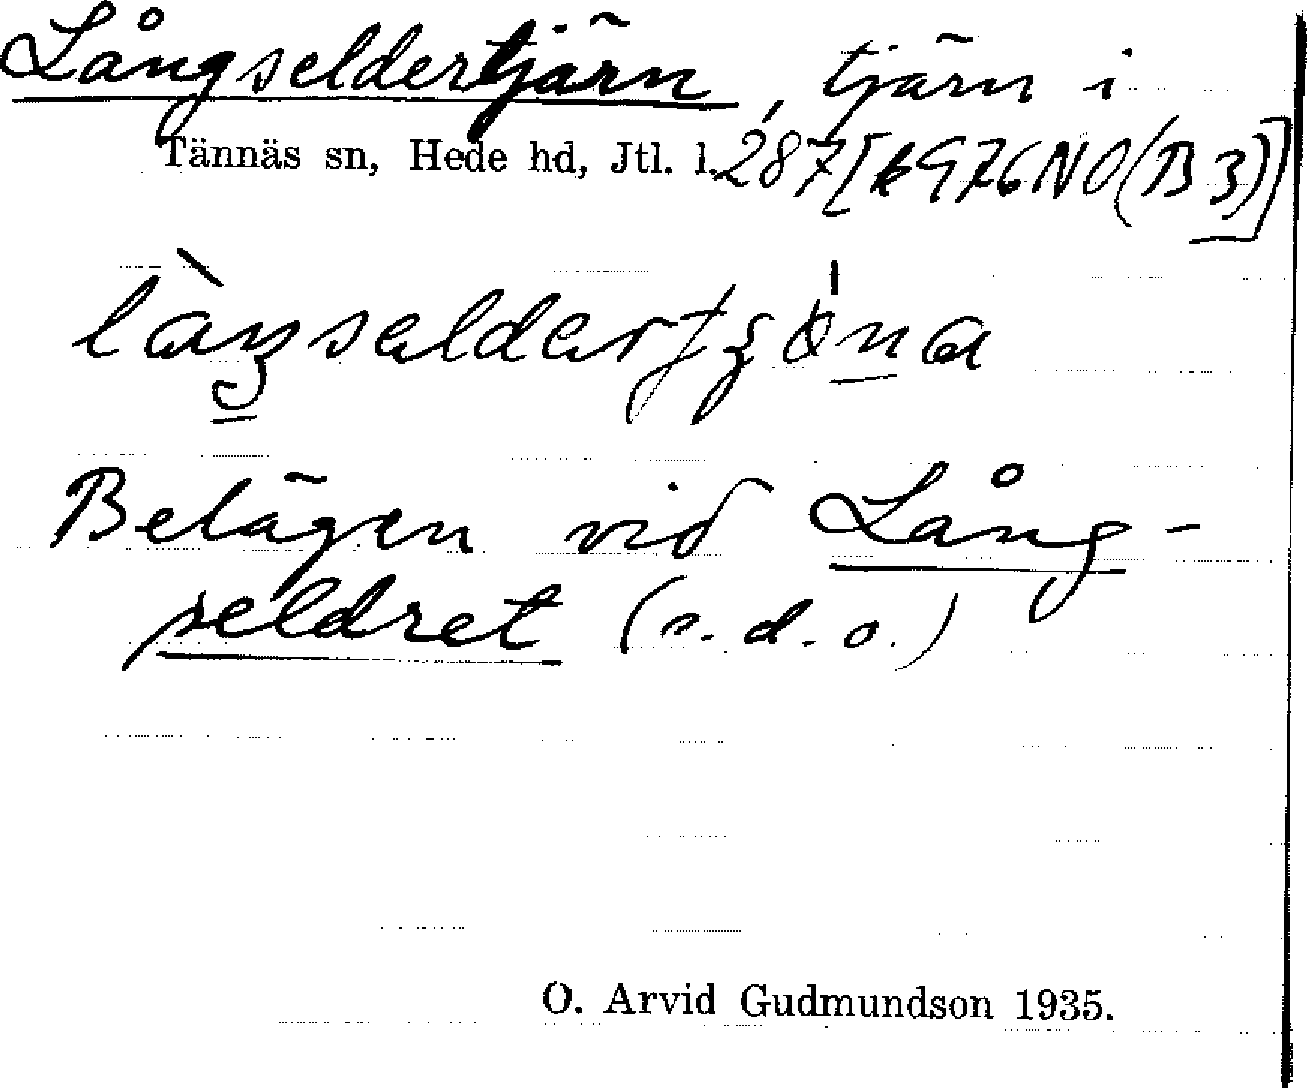 Långseldertjärn, tjärn i
Tännäs sn, Hede hd, Jtl. l. 287 [k 976 NO (B 3)]
Belägen vid Lång-
seldret (s. d. o.)
O. Arvid Gudmundson 1935.